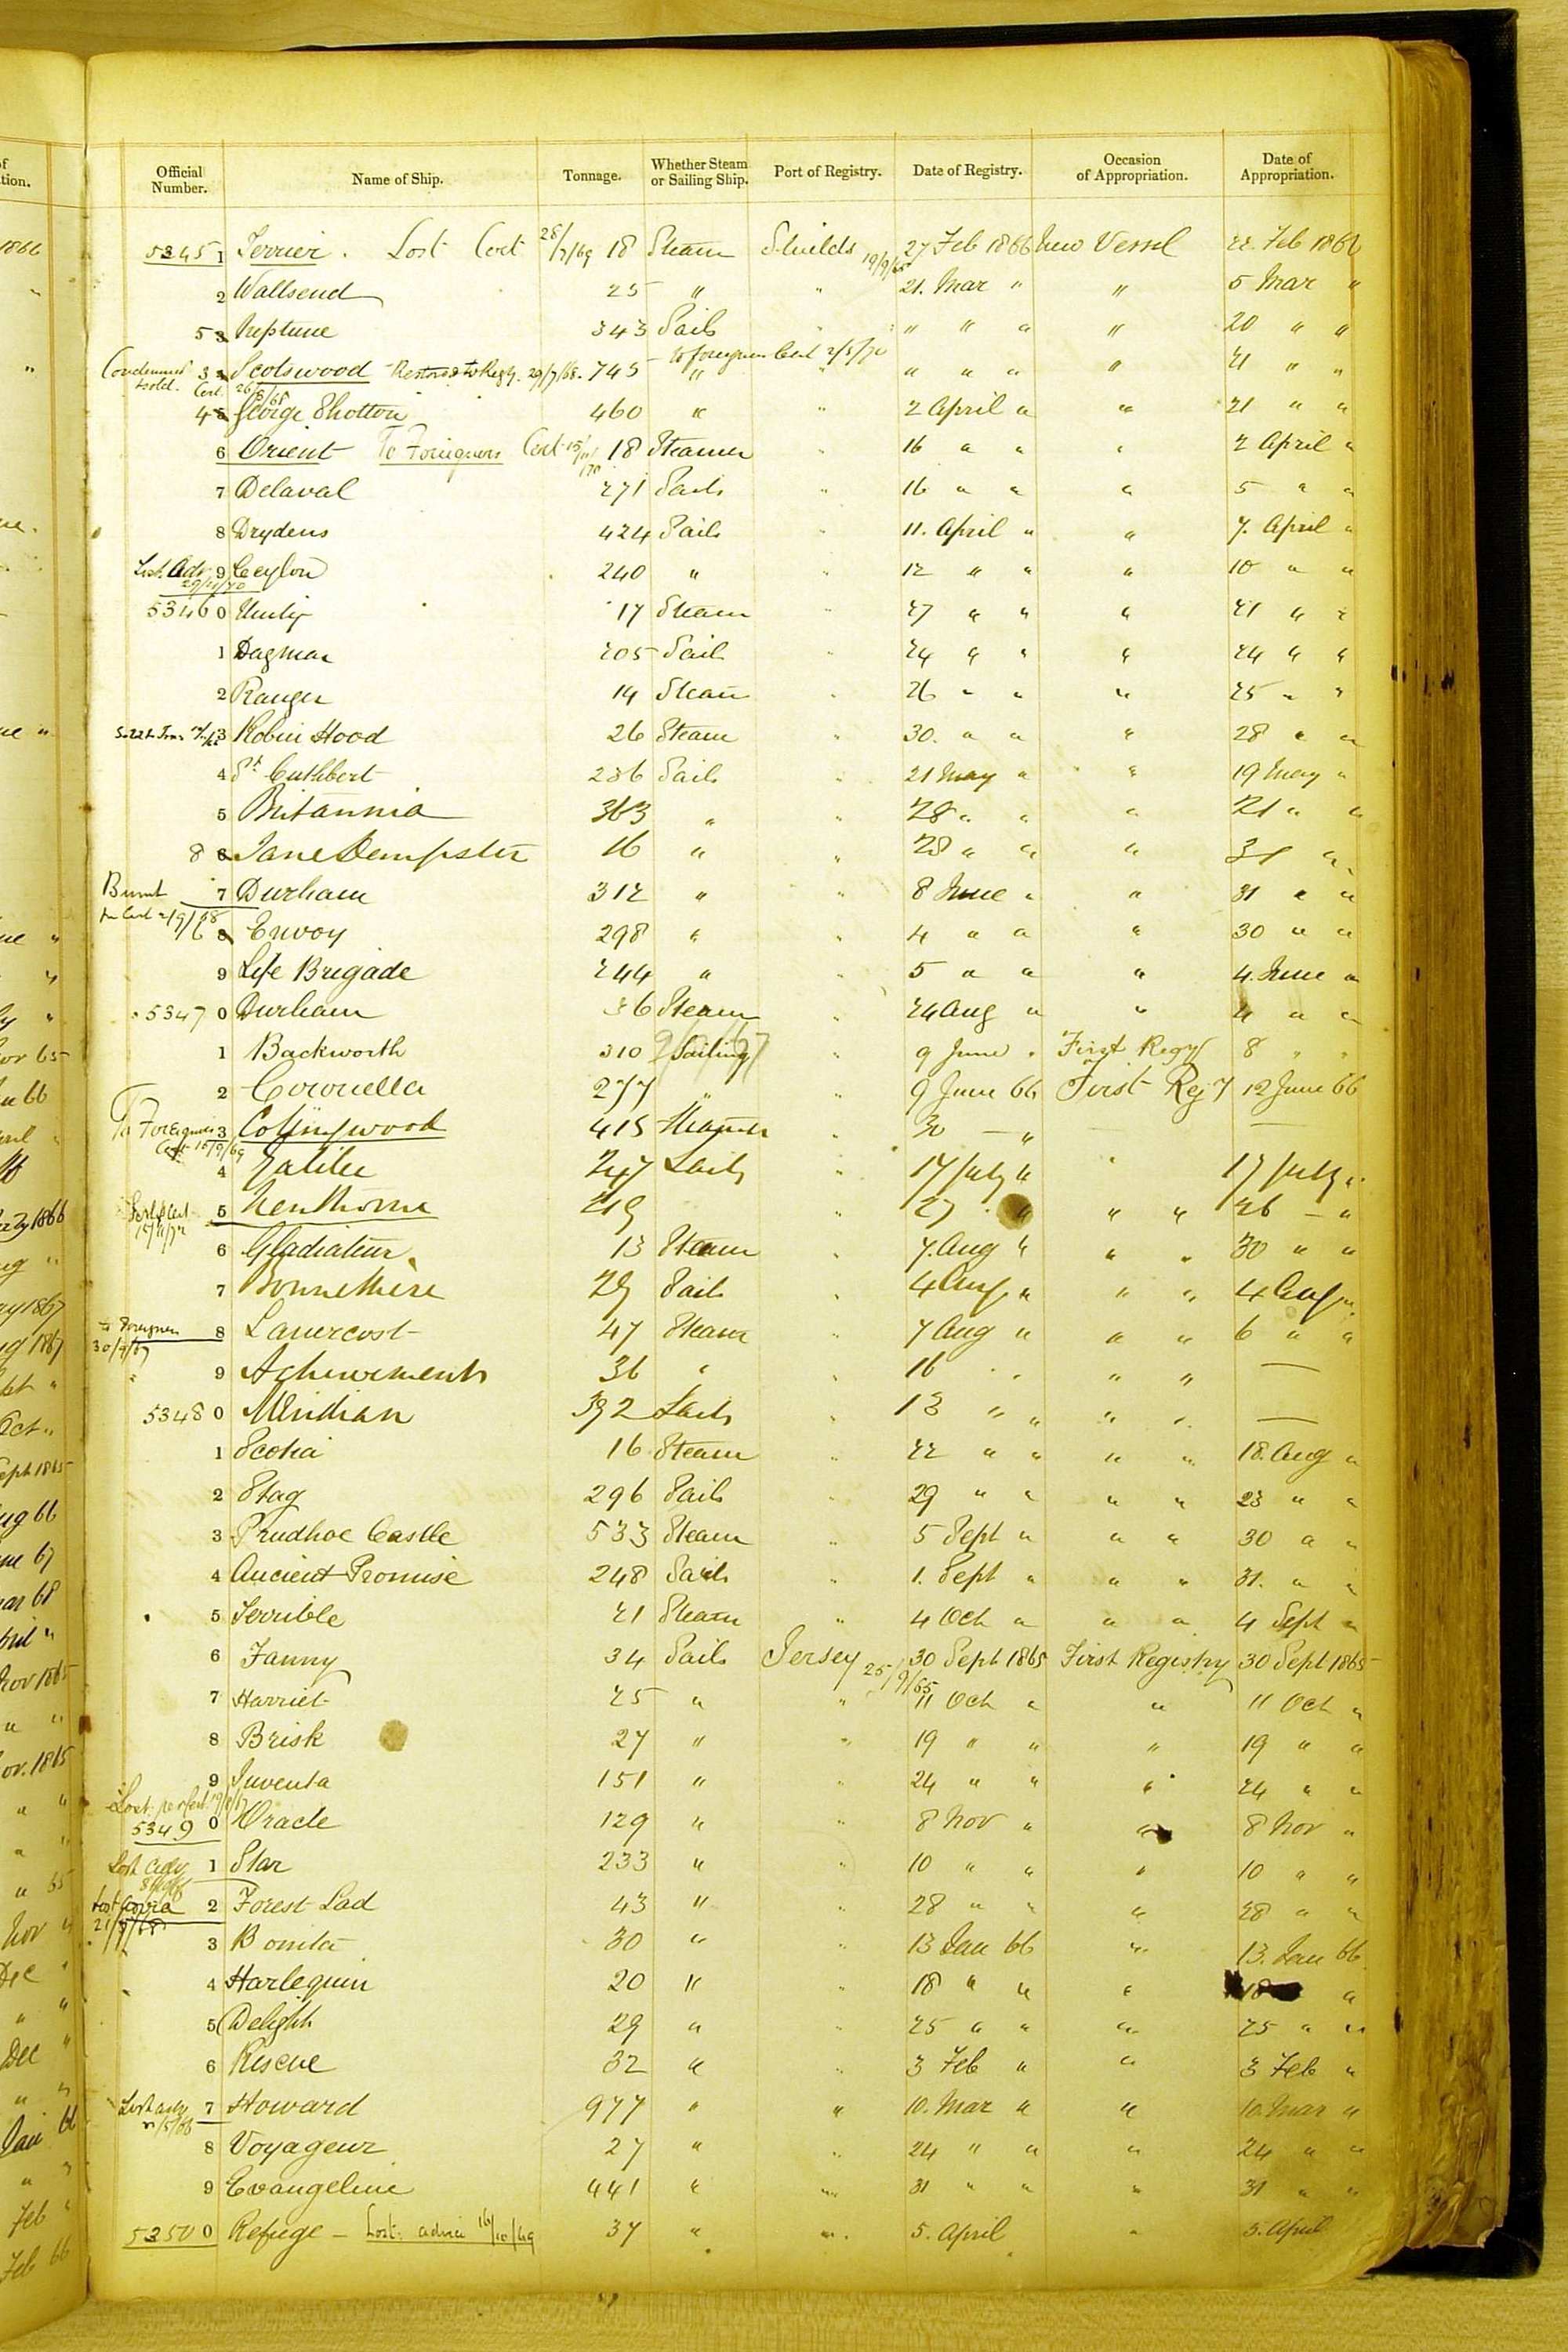 Official Number. Name of Ship. Tonnage. Whether Steam or Sailing Ship. Port of Registry. Date of Registry. Occasion of Appropriation. Date of Appropriation.
5345 1 Terrier. Lost Cert 28/7/69 18 Steam Shields 19/9/65 27 Feb 1866 New Vessel 22. Feb 1866
2 Wallsend 25 " " 21. Mar " " 5 Mar "
53 Neptune 343 Sails " " " " " 20 " "
Condemned & sold. Cert. 26/8/68 3 Scotswood Restored to Regy. 29/7/68. 745 " To foreigners Cert 2/5/70 " " " " 21 " "
4 George Shotton 460 " " 2 April " " 21 " "
6 Orient To Foreigners Cert 15/11/70 18 Steamer " 16 " " " 2 April "
7 Delaval 271 Sails " 16 " " " 5 " "
8 Drydens 424 Sails " 11. April " " 7. April "
Lost. Adv 29/11/70 9 Ceylon 240 " " 12 " " " 10 " "
5346 0 Unity 17 Steam " 27 " " " 21 " "
1 Dagmar 205 Sail " 24 " " " 24 " "
2 Ranger 14 Steam " 26 " " " 25 " "
3 Robin Hood 26 Steam " 30. " " " 28 " "
4 St Cuthbert 286 Sails " 21 May " " 19 May "
5 Britannia 363 " " 28 " " " 21 " "
8 Jane Dempster 16 " " 28 " " " 31 "
Burnt per Cert 2/9/68 7 Durham 312 " " 8 June " " 31 " "
6 Envoy 298 " " 4 " " " 30 " "
9 Life Brigade 244 " " 5 " " " 4. June "
5347 0 Durham 36 Steam " 24 Aug " " 4 " "
1 Backworth 310 Sailing " 9 June " First Regy 8 " "
2 Coronella 277 " 9 June 66 First Regy 12 June 66
To Foreigners Cert 10/9/69 3 Collingwood 415 Steamer 30 — " —
4 Galilee 247 Sails " 17 July " " 17 July "
5 Kenthorne 219 " 27 " " " 26 — "
6 Gladiateur 13 Steam " 7. Aug " " " 30 " "
7 Bonne Mere 29 Sail " 4 Aug " " " 4 Aug "
To Foreigner 30/9/67 8 Lanercost 47 Steam " 7 Aug " " " 6 " "
9 Achievement 36 " " 16 " " " " —
5348 0 Meridian 392 Sails " 13 " " " " —
1 Scotia 16 Steam " 22 " " " " 18. Aug "
2 Stag 296 Sails " 29 " " " " 23 " "
3 Prudhoe Castle 533 Steam " 5 Sept " " " 30 " "
4 Ancient Promise 248 Sails " 1. Sept " " " 31. " "
5 Terrible 21 Steam " 4 Oct " " " 4 Sept "
6 Fanny 34 Sails Jersey 25/9/65 30 Sept 1865 First Registry 30 Sept 1865
7 Harriet 25 " " 11 Oct " " 11 Oct "
8 Brisk 27 " " 19 " " " 19 " "
9 Juventa 151 " " 24 " " " 24 " "
5349 0 Oracle 129 " " 8 Nov " " 8 Nov "
Lost adv 1 Star 233 " " 10 " " " 10 " "
21/9/68 2 Forest Lad 43 " " 28 " " " 28 " "
3 Bonita 30 " " 13 Jan 66 " 13. Jan 66
4 Harlequin 20 " " 18 " " " 18 "
5 Delight 29 " " 25 " " " 25 " "
6 Rescue 32 " " 3 Feb " " 3 Feb "
Lost adv 7 Howard 977 " " 10. Mar " " 10. Mar "
8 Voyageur 27 " " 24 " " " 24 " "
9 Evangeline 441 " " 31 " " " 31 " "
5350 0 Refuge — Lost. advice 16/10/69 37 " " 5. April " 5. April